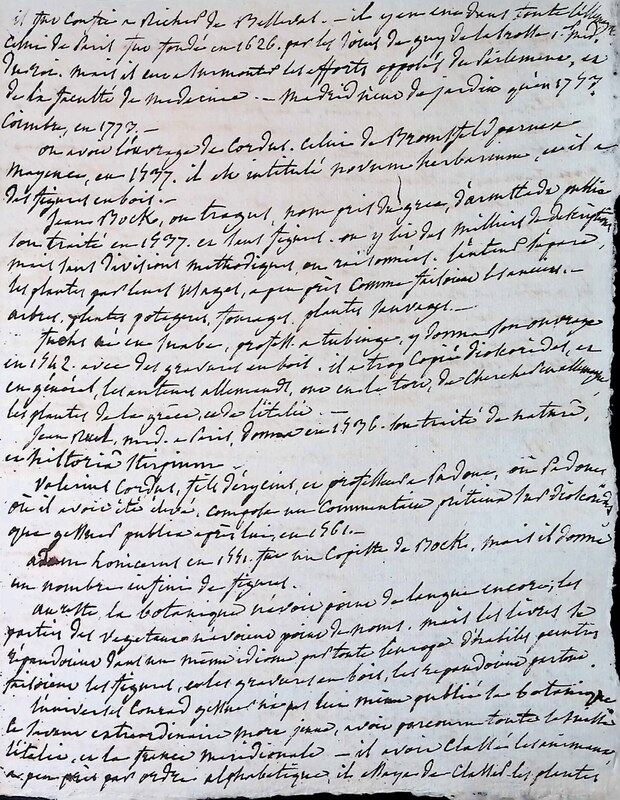 il fut confié a Richer de Belleval. – il y en eut dans toute l'allemagne
Celui de Paris fut fondé en 1626. par les soins de guy de la brosse, md.
du roi. mais il eut a surmonter les efforts opposés, du Parlement, et
de la faculté de medecine. – Madrid n'eut de jardin qu'en 1753.
Coimbre, en 1773. –
on avoit l'ouvrage de Cordus. Celui de Bromsfeld parut a
Mayence, en 1537. il est intitulé novum herbarium, et il a
des figures en bois. –
Jean Bock, ou tragus, nom pris du grec, publia
son traité en 1537. et sans figures. on y lit des milliers de descriptions
mais sans divisions methodiques, ou raisonnées.
les plantes par leurs usages, a peu près comme faisoient les anciens. –
arbres, plantes potageres, fourages, plantes sauvages. –
fuchs né en Suabe, profess. a tubinge, y donna son ouvrage
en 1542. avec des gravures en bois. il a trop copié dioscorides, et
en général, les auteurs allemands, ont eu le tort, de chercher en allemagne
les plantes de la grece, et de l'italie. –
Jean Ruel, md. a Paris, donna en 1536. son traité de naturâ,
et historiâ stirpium –
Valerius Cordus, fils d'Erycius, et professeur a Padoue, ou Padoue
où il avoit été élevé, compose un Commentaire précieux sur dioscorides
que gessner publia après lui, en 1561. –
adam lonicerus en 1551. fut un Copiste de Bock, mais il donne
un nombre infini de figures.
au reste, la botanique n'avoit point de langue encore; les
parties des vegetaux n'avoient point de noms. mais les livres se
repandoient dans un même idiome par toute l'europe d'habiles peintres
faisoient les figures, et les gravures en bois, les repandoient partout.
l'universel Conrad gessner n'a pas lui même publié la botanique
ce savant extraordinaire mort jeune, avoit parcouru toute la suisse
l'italie, et la france méridionale – il avoit classé les animaux
a peu près par ordre alphabétique, il essaya de classer les plantes